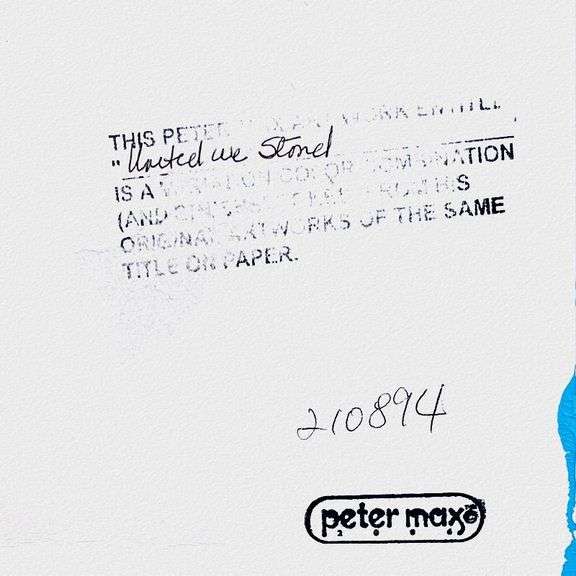 THIS PETER MAX ARTWORK ENTITLE
"United we Stand
IS A VARIATION COLOR COMBINATION
(AND FROM HIS
ORIGINAL ARTWORKS OF THE SAME
TITLE ON PAPER.
210894
peter max